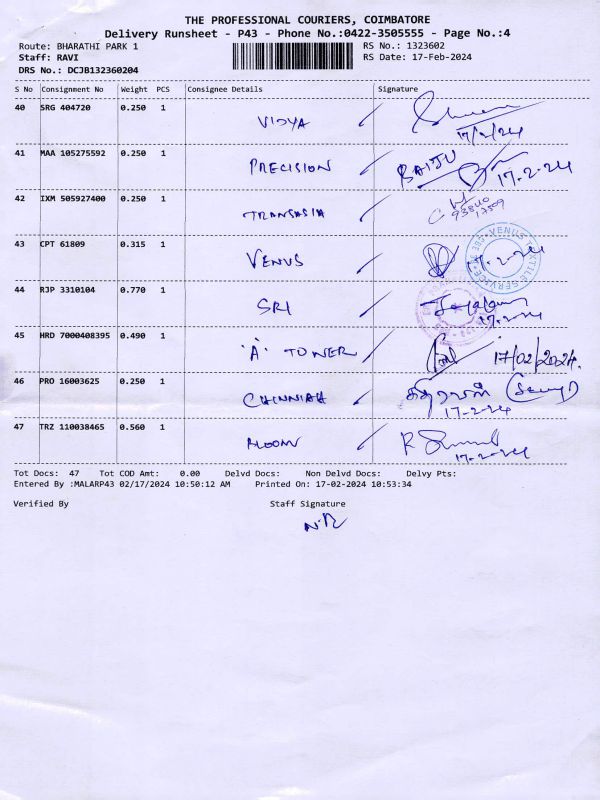 THE PROFESSIONAL COURIERS, COIMBATORE
Delivery Runsheet - P43 - Phone No.:0422-3505555 - Page No.:4
Route: BHARATHI PARK 1 RS No.: 1323602
Staff: RAVI RS Date: 17-Feb-2024
DRS No.: DCJB132360204
S No Consignment No Weight PCS Consignee Details Signature
40 SRG 404720 0.250 1
VIDYA 17/2/24
41 MAA 105275592 0.250 1 BAIJU
PRECISION 17.2.24
42 IXM 505927400 0.250 1
TRANSASIA 93840
17509
43 CPT 61809 0.315 1 VENUS TEXTILE SERVICE
VENUS 17.2.24
44 RJP 3310104 0.770 1
SRI 17.2.24
45 HRD 7000408395 0.490 1
'A' TOWER 17/02/2024.
46 PRO 16003625 0.250 1
CHINNIAH 17-2-24
47 TRZ 110038465 0.560 1
MOONV 17-2-24
Tot Docs: 47 Tot COD Amt: 0.00 Delvd Docs: Non Delvd Docs: Delvy Pts:
Entered By :MALARP43 02/17/2024 10:50:12 AM Printed On: 17-02-2024 10:53:34
Verified By Staff Signature